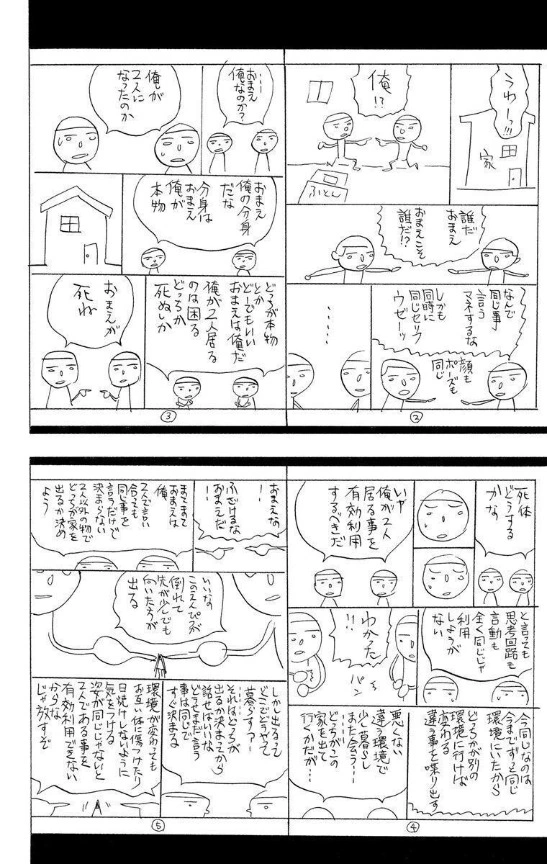 うわー!!!
家
俺!?
ふとん
誰だ
おまえ
おまえこそ
誰だ!?
なんで
同じ事
言う
マネするな
しかも
同時に
同じセリフ
ウゼーッ
顔も
ポーズも
同じ
・・・・
②
・・・・
おまえ
俺なのか?
俺が
2人に
なったのか
おまえ
俺の分身
だな
分身は
おまえ
俺が
本物
どっちが本物
とか
どーでもいい
おまえは俺だ
俺が2人居る
のは困る
どっちか
死ぬしか
おまえが
死ね
③
死体
どうする
かな
いや
俺が2人
居る事を
有効利用
するべきだ
と言っても
思考回路も
言動も
全く同じじゃ
利用
しようが
ない
わかった
!!
パン
今同じなのは
今までずっと同じ
環境にいたから
どっちかが別の
環境に行けば
変わる
違う事を喋り出す
悪くない
違う環境で
少し暮らし
また会う…
どっちがこの
家を出て
行くかだが…
④
おまえな
!!
ふざけるな
おまえだ
!!
まてまて
おまえは
俺
2人で言い
合っても
同じ事を
言うだけで
決まらない
2人以外の物で
どっちが家を
出るか決め
よう
いいな
このえんぴつが
倒れて
先が少しでも
向いた方が
出る
しかし出るって
どこでどうやって
暮らす?
それはどっちが
出るか決まってから
話せばいいな
どうせまた言う
事は同じで
すぐ決まる
環境が変わっても
お互い体に傷つけたり
日焼けしないように
気をつける
姿が同じじゃないと
2人である事を
有効利用できない
からな
じゃ放すぞ
⑤